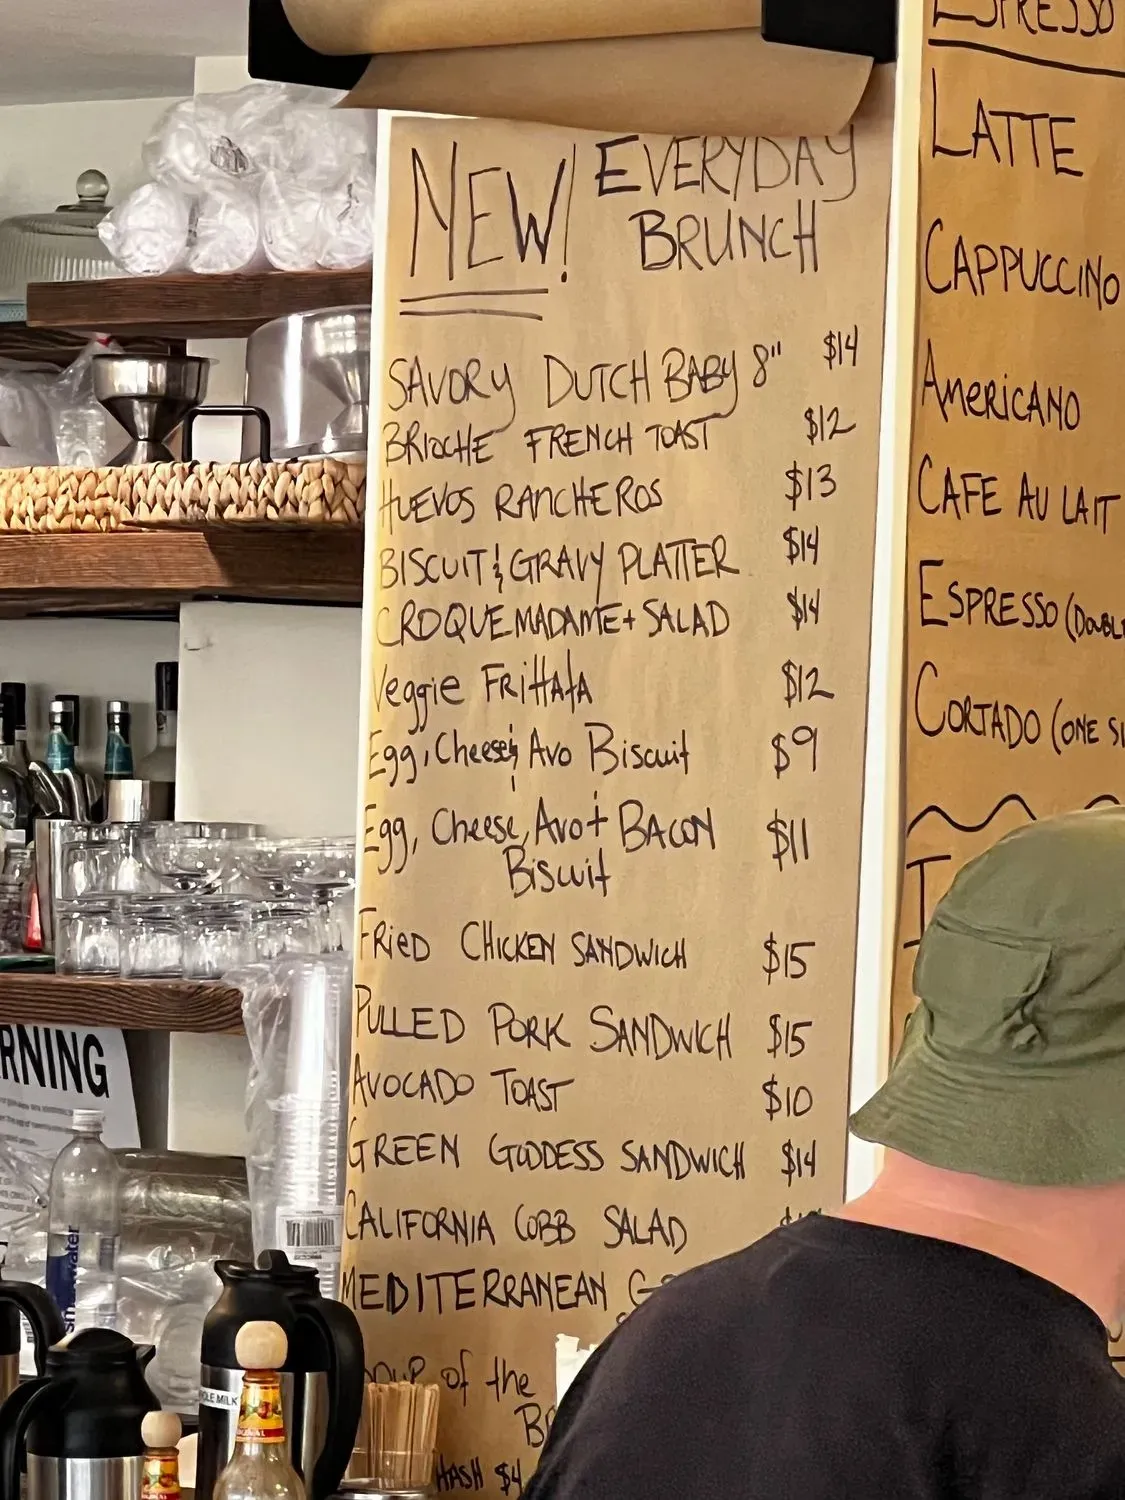 NEW! EVERYDAY
BRUNCH
SAVORY DUTCH BABY 8" $14
BRIOCHE FRENCH TOAST $12
HUEVOS RANCHEROS $13
BISCUIT & GRAVY PLATTER $14
CROQUE MADAME + SALAD $14
Veggie FRittata $12
Egg, Cheese & Avo Biscuit $9
Egg, Cheese, Avo + BACON $11
Biscuit
FRieD CHICKEN SANDWICH $15
PULLED PORK SANDWICH $15
AVOCADO TOAST $10
GREEN GODDESS SANDWICH $14
CALIFORNIA COBB SALAD
MEDITERRANEAN
of the
HASH $4
ESPRESSO
LATTE
CAPPUCCINO
AmeRICANO
CAFE AU LAIT
ESPRESSO (DOUBL
CORTADO (ONE
RNING
smartwater
OLE MILK